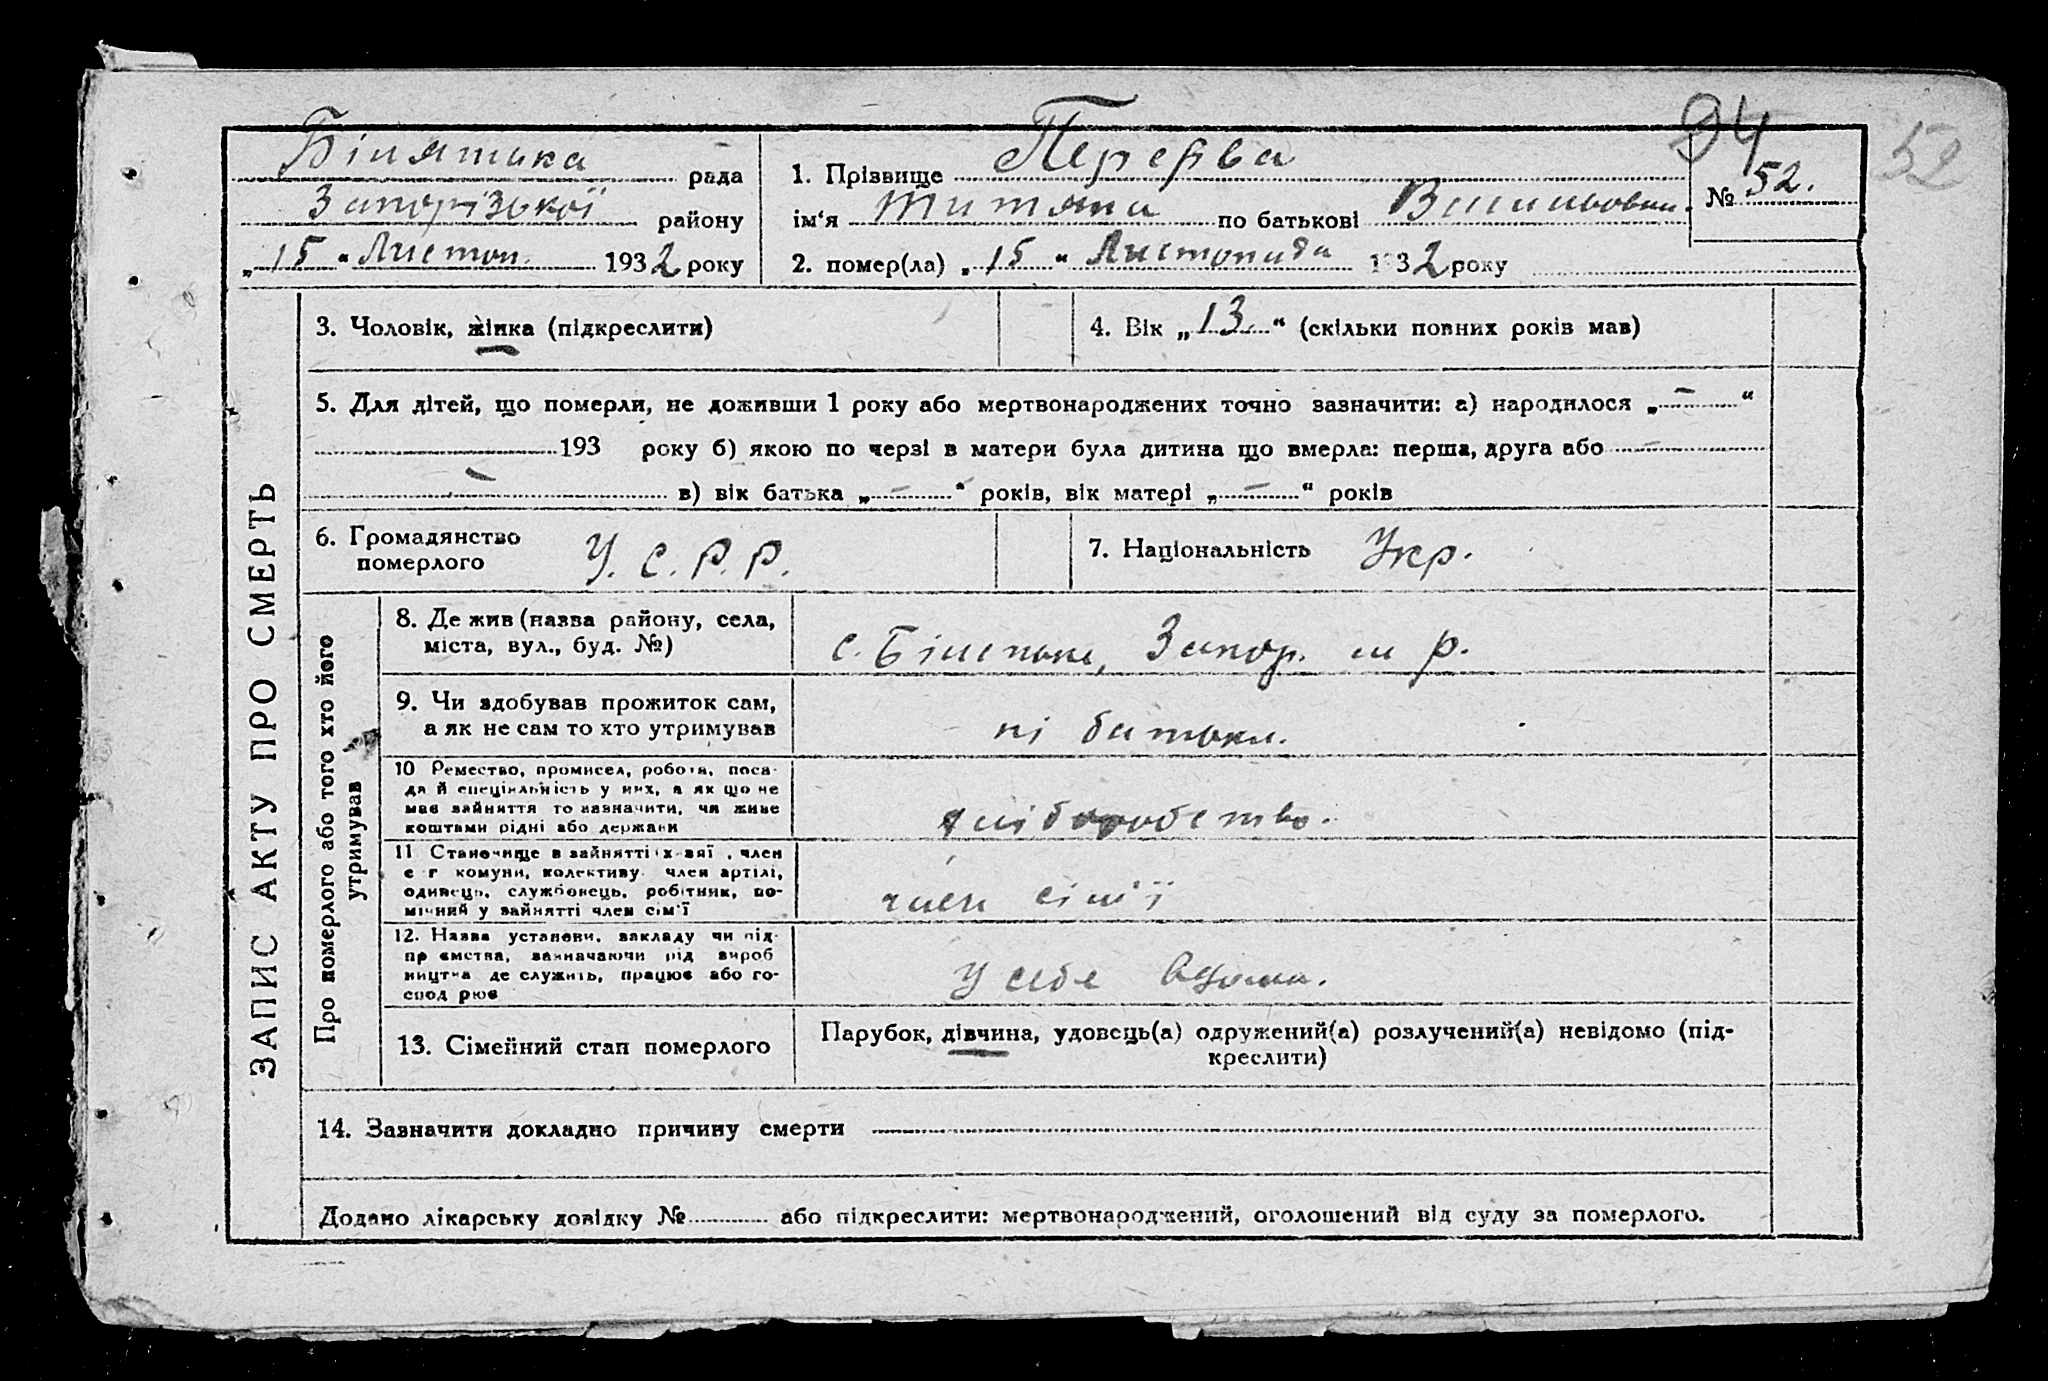 94
52
Білянська рада
Запорізької району
„15“ Листоп. 1932 року
1. Прізвище Перерва
№ 52.
ім‘я Титяна по батькові Васильовна.
2. помер(ла) „15“ Листопада 1932 року
ЗАПИС АКТУ ПРО СМЕРТЬ
3. Чоловік, жінка (підкреслити)
4. Вік „13“ (скільки повних років мав)
5. Для дітей, що померли, не доживши 1 року або мертвонароджених точно зазначити: а) народилося „-“
193 року б) якою по черзі в матери була дитина що вмерла: перша, друга або -
- в) вік батька „-“ років, вік матері „-“ років
6. Громадянство
померлого
У. С. Р. Р.
7. Національність Укр.
Про померлого або того хто його
утримував
8. Де жив (назва району, села,
міста, вул., буд. №)
с. Біленьке, Запор. р.
9. Чи здобував прожиток сам,
а як не сам то хто утримував
ні батьки.
10 Ремество, промисел, робота, поса-
да й спеціяльність у них, а як що не
має зайняття то зазначити, чи живе
коштами рідні або держави
хліборобство.
11 Становище в зайнятті член
комуни, колективу член артілі,
одинець, службовець, робітник, по-
мічний у зайнятті член сім'ї
член сім'ї
12. Назва установи, закладу чи під-
приємства, зазначаючи рід вироб
ництва де служить, працює або го-
сподарює
У себе вдома.
13. Сімейний стан померлого
Парубок, дівчина, удовець(а) одружений(а) розлучений(а) невідомо (під-
креслити)
14. Зазначити докладно причину смерти
Додано лікарську довідку № або підкреслити: мертвонароджений, оголошений від суду за померлого.